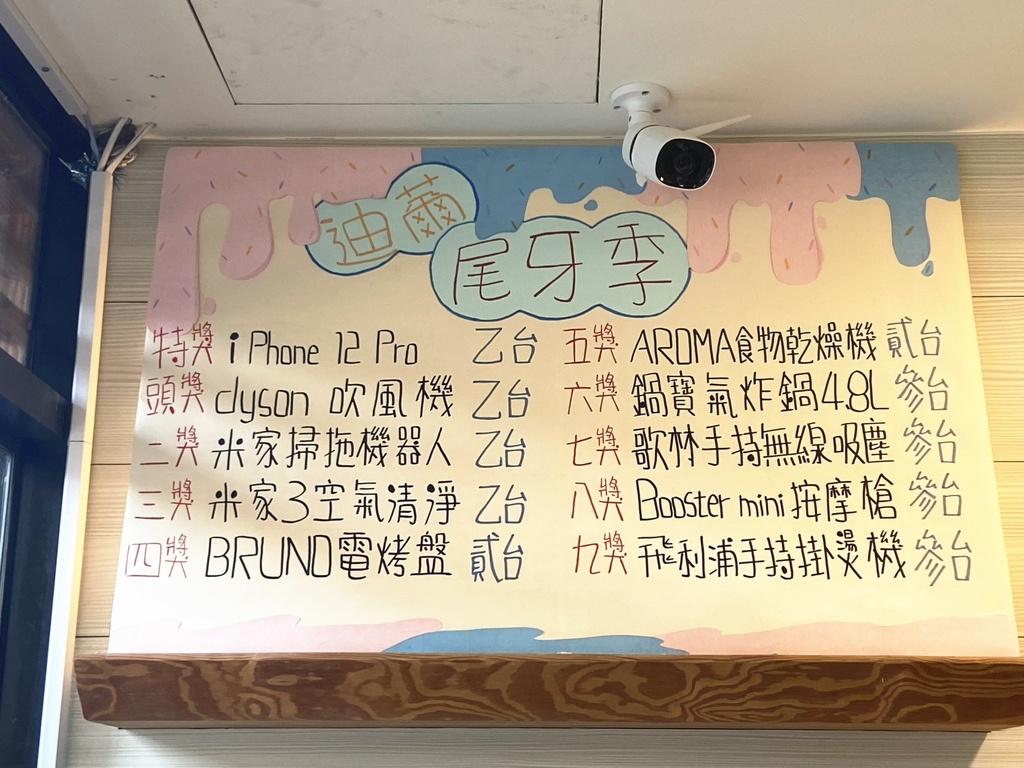 迪薾
尾牙季
特獎 iPhone 12 Pro 乙台
頭獎 dyson 吹風機 乙台
二獎 米家掃拖機器人 乙台
三獎 米家3空氣清淨 乙台
四獎 BRUNO電烤盤 貳台
五獎 AROMA食物乾燥機 貳台
六獎 鍋寶氣炸鍋4.8L 參台
七獎 歌林手持無線吸塵 參台
八獎 Booster mini按摩槍 參台
九獎 飛利浦手持掛燙機 參台